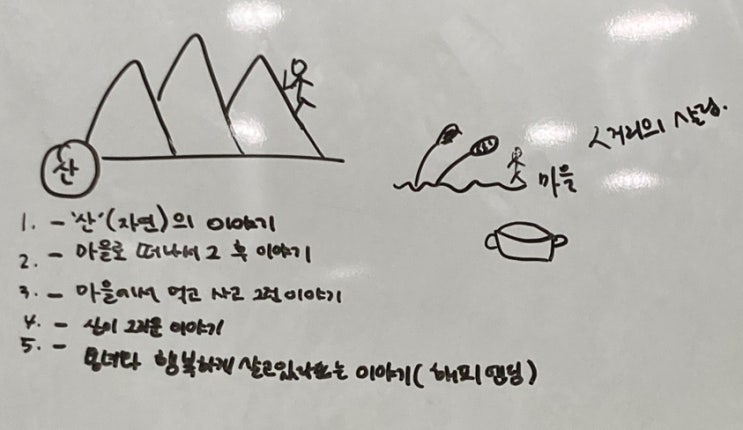 산
마을
<거리의 사람.
1. – '산'(자연)의 이야기
2. – 마을로 떠나서 그 후 이야기
3. – 마을에서 먹고 사고 그런 이야기
4. – 산이 그리운 이야기
5. – 모녀다 행복하게 살고있나쁘는 이야기(해피앤딩)